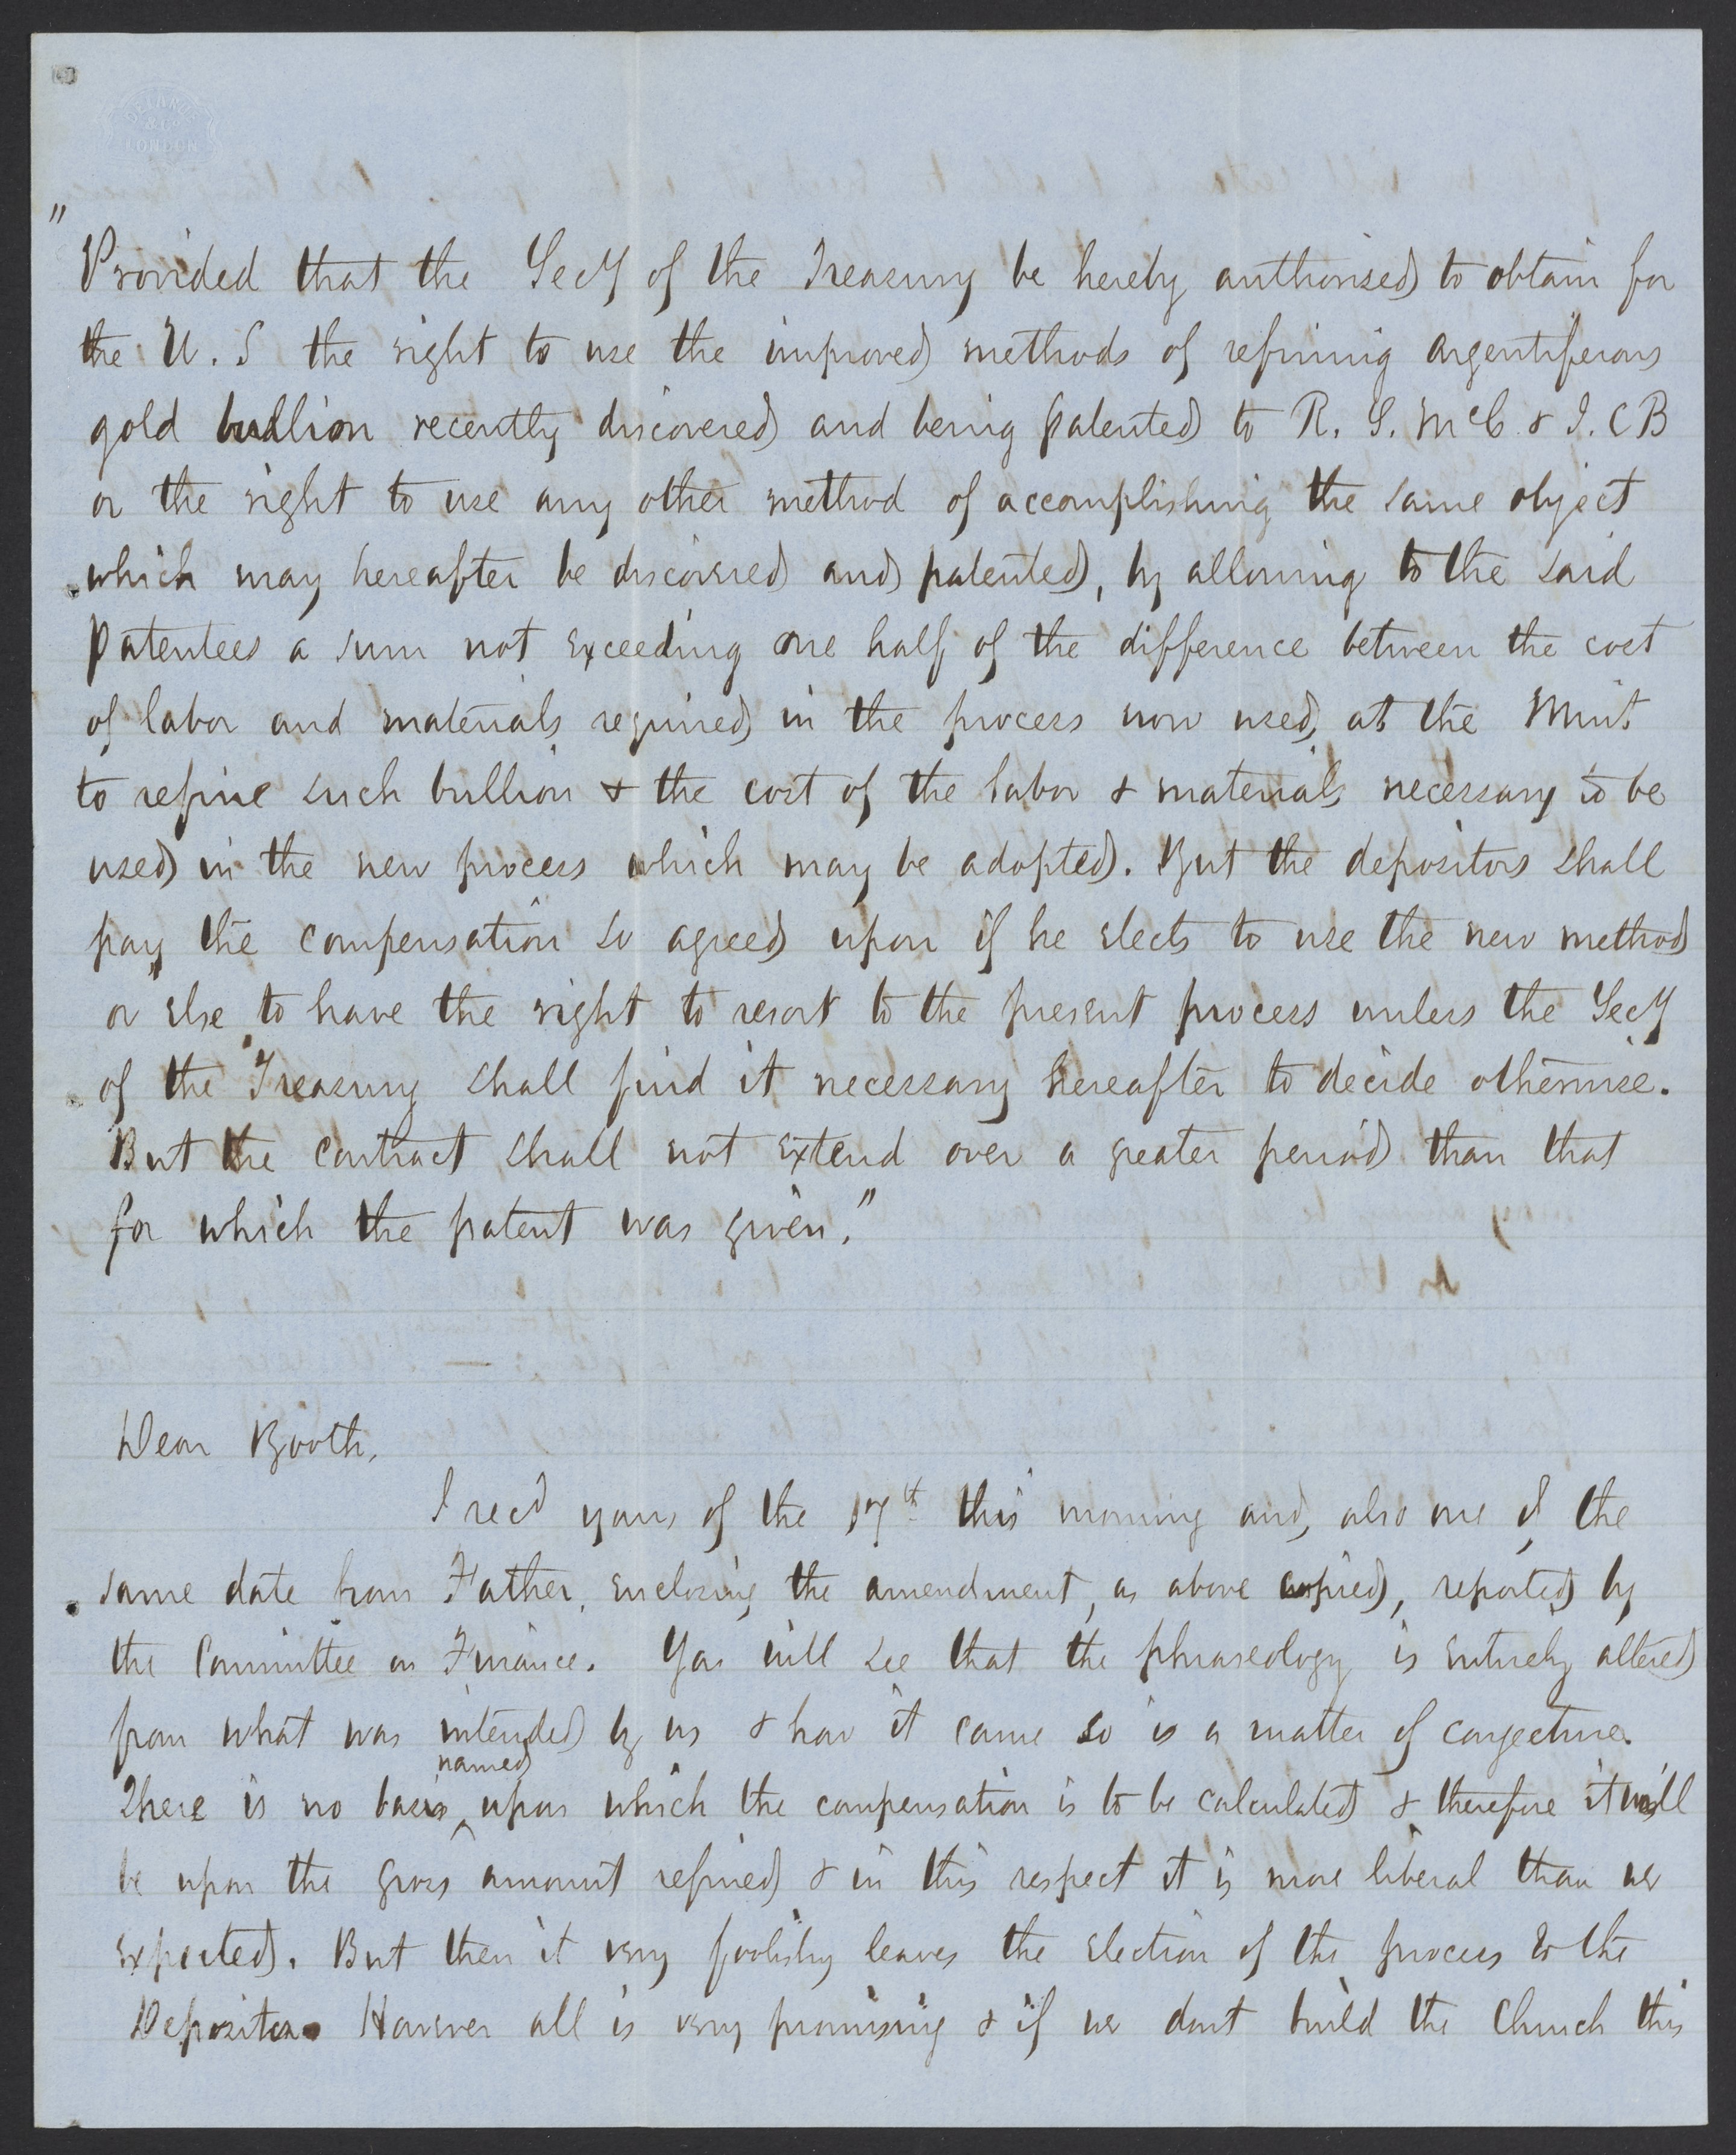 DE LA RUE
& Co
LONDON
"Provided that the Secy of the Treasury be hereby authorised to obtain for
the U. S the right to use the improved methods of refining argentiferous
gold bullion recently discovered and being patented to R. S. McC. & J. C B
or the right to use any other method of accomplishing the same object
which may hereafter be discovered and patented, by allowing to the said
Patentees a sum not exceeding one half of the difference between the cost
of labor and materials required in the process now used at the Mint
to refine such bullion & the cost of the labor & materials necessary to be
used in the new process which may be adopted. But the depositors shall
pay the compensation so agreed upon if he elects to use the new method
or else to have the right to resort to the present process unless the Secy
of the Treasury shall find it necessary hereafter to decide otherwise.
But the contract shall not extend over a greater period than that
for which the patent was given."
Dear Booth,
I recd yours of the 17th this morning and also one of the
same date from Father, enclosing the amendment, as above copied, reported by
the Committee on Finance. You will see that the phraseology is entirely altered
from what was intended by us & how it came so is a matter of conjecture.
There is no basis named upon which the compensation is to be calculated & therefore it will
be upon the gross amount refined & in this respect it is more liberal than we
expected. But then it very foolishly leaves the election of the process to the
Depositor. However all is very promising & if we dont build the Church this